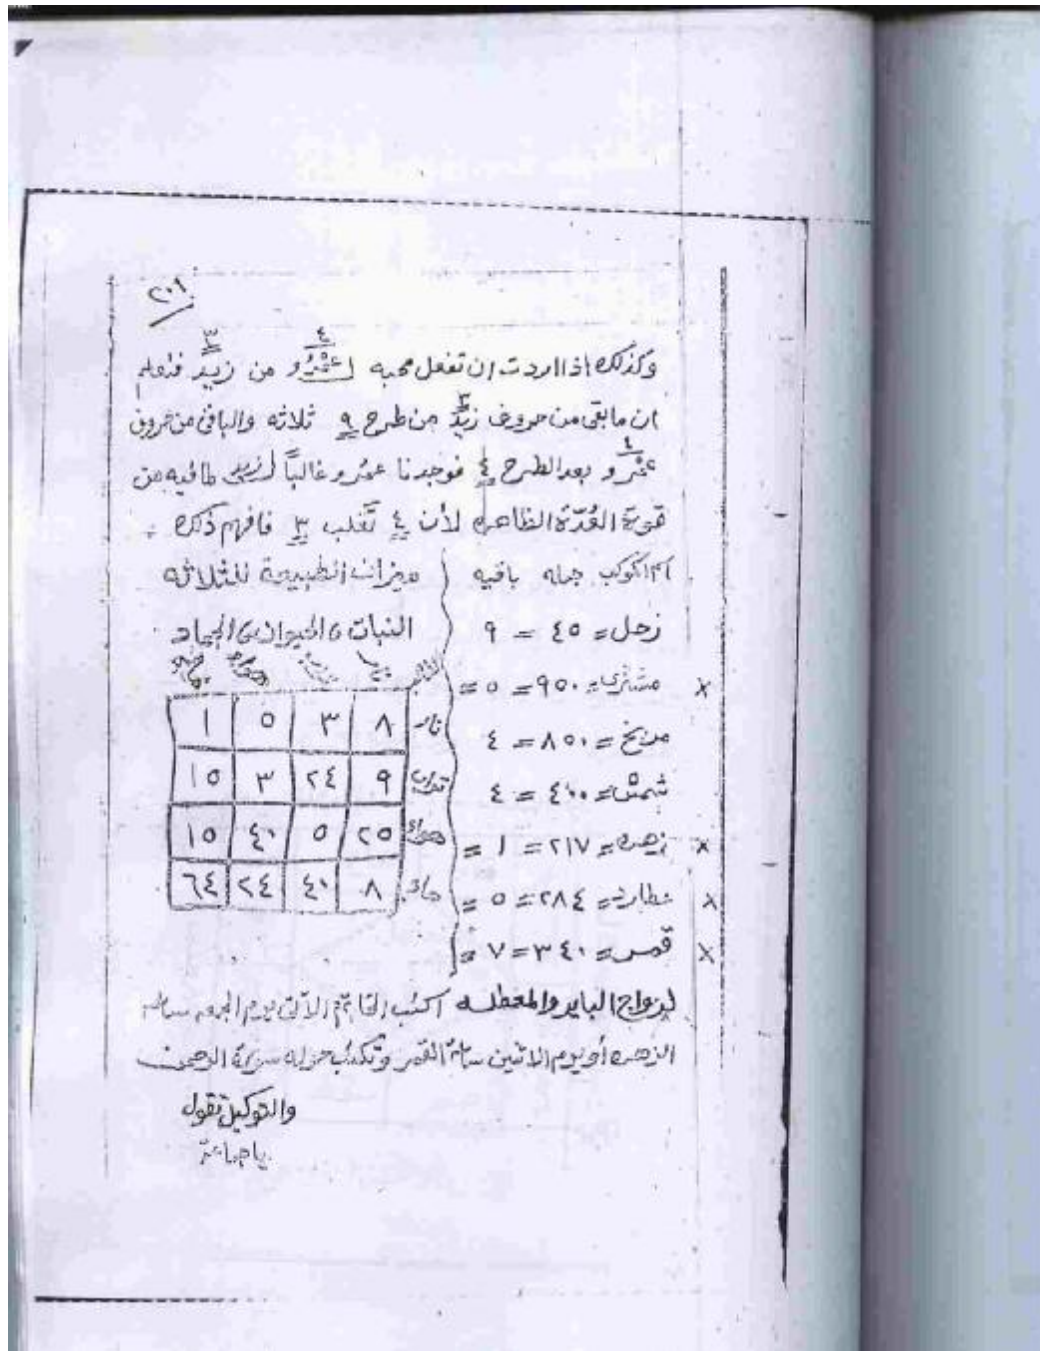 ٢٠٩
٤ ٣
وكذلك اذا اردت ان تفعل محبه لعَمْرُو من زيدٍ فتعلم
ان مابقى من حروف زيدٌ من طرح ٩ ثلاثه والباقى من حروف
٣
عمْرو بعد الطرح ٤ فوجدنا عمرو غالباً لزيد لما فيه من
٤
قوة العُدّة الظاهره لأن ٤ تَغلب ٣ فافهم ذلك .
اسم الكوكب جمله باقيه
زحل = ٤٥ = ٩
مشترى = ٩٥٠ = ٥ = ×
مريخ = ٨٥٠ = ٤
شمسْ = ٤٠٠ = ٤
زهره = ٢١٧ = ١ = ×
عطارد = ٢٨٤ = ٥ = ×
قمر = ٣٤٠ = ٧ = ×
ميزان الطبيعة للثلاثه
النبات والحيوان والجماد
هواء ماء
نار ٨ ٣ ٥ ١
تراب ٩ ٢٤ ٣ ١٥
هواء ٢٥ ٥ ٤٠ ١٥
ماء ٨ ٤٠ ٢٤ ٦٤
لزواج الباير والمعطله اكتب الخاتم الآتى يوم الجمعه ساعة
الزهره أو يوم الاثنين ساعة القمر وتكتب حوله سورة الرحمن
والتوكيل تقول
ياجماعة